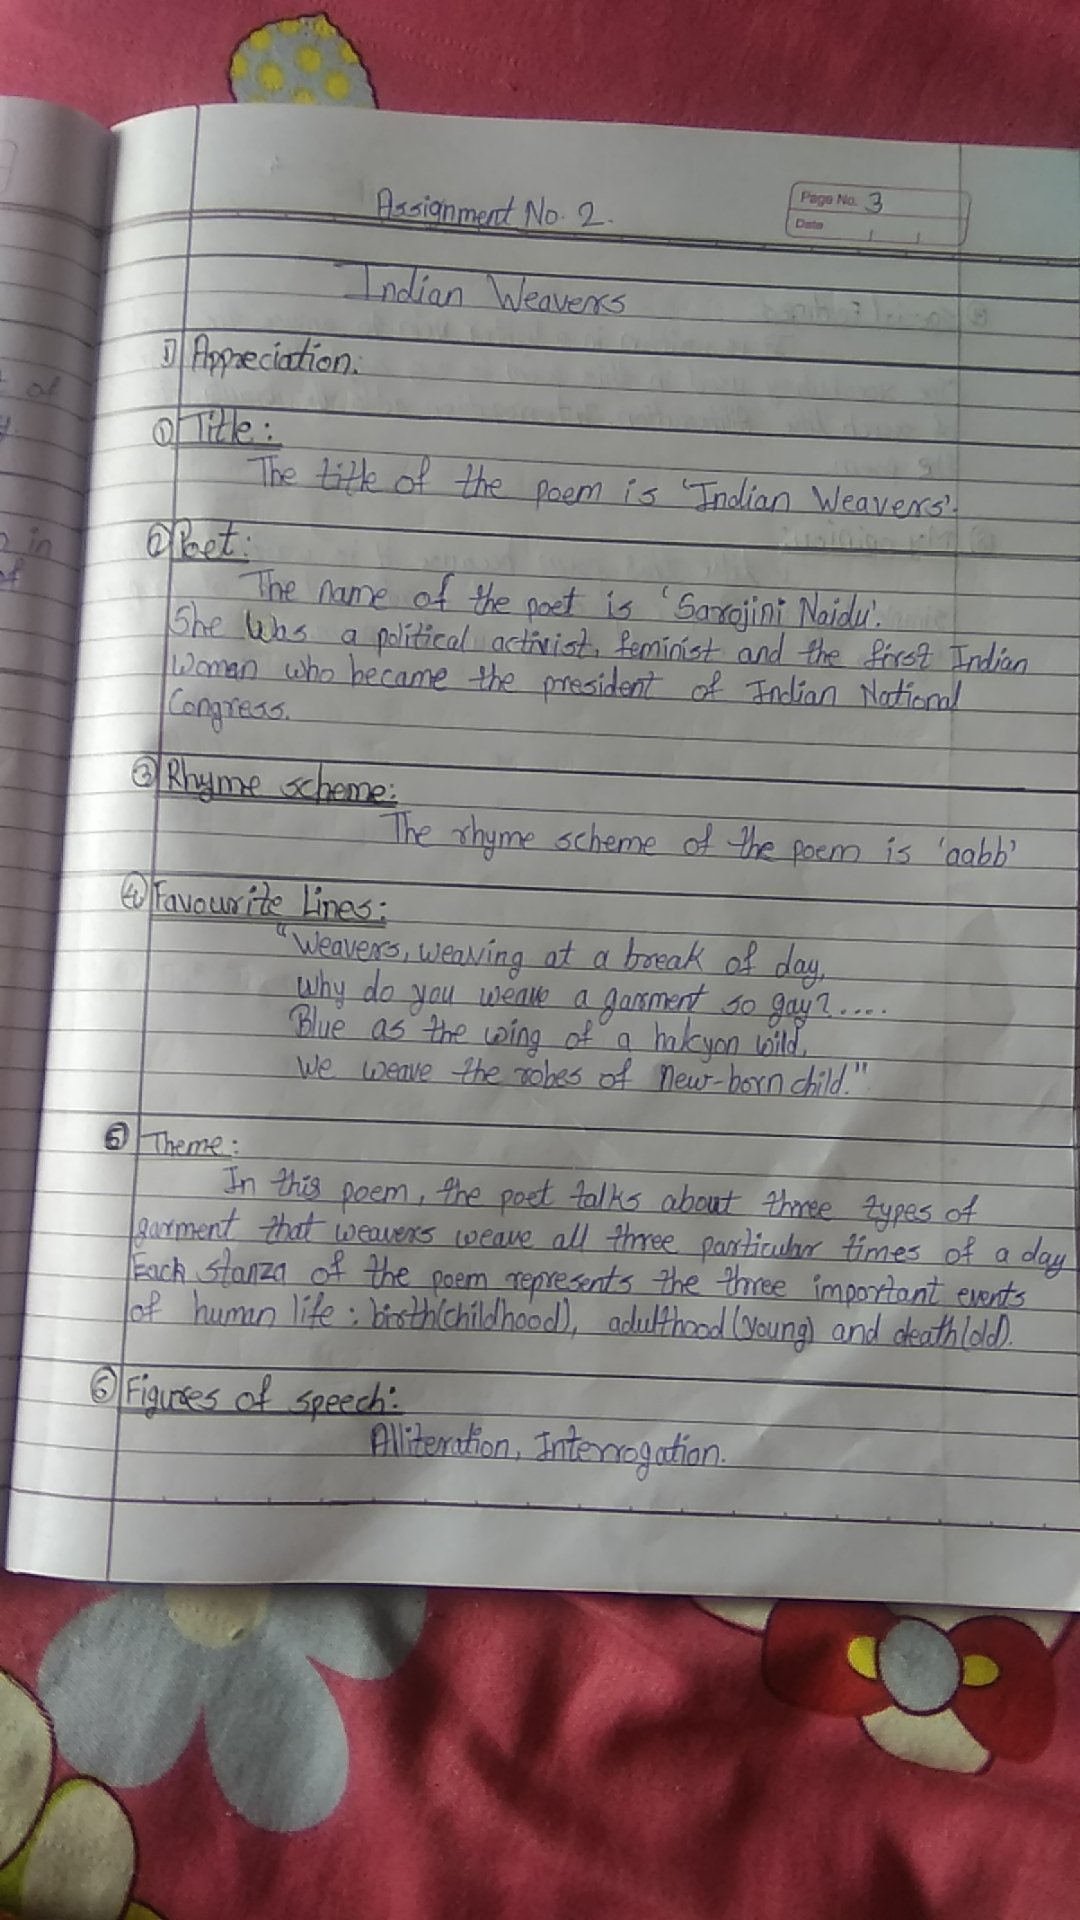 Assignment No. 2.
Page No. 3
Date
Indian Weavers
1) Appreciation:
① Title:
The title of the poem is 'Indian Weavers'.
② Poet:
The name of the poet is 'Sarojini Naidu'.
She was a political activist, feminist and the first Indian
Woman who became the president of Indian National
Congress.
③ Rhyme scheme:
The rhyme scheme of the poem is 'aabb'
④ Favourite Lines:
"Weavers, weaving at a break of day,
Why do you weave a garment so gay?....
Blue as the wing of a halcyon wild,
We weave the robes of new-born child."
⑤ Theme:
In this poem, the poet talks about three types of
garment that weavers weave all three particular times of a day
Each stanza of the poem represents the three important events
of human life : birth(childhood), adulthood (young) and death(old).
⑥ Figures of speech:
Alliteration, Interrogation.
of
in
of